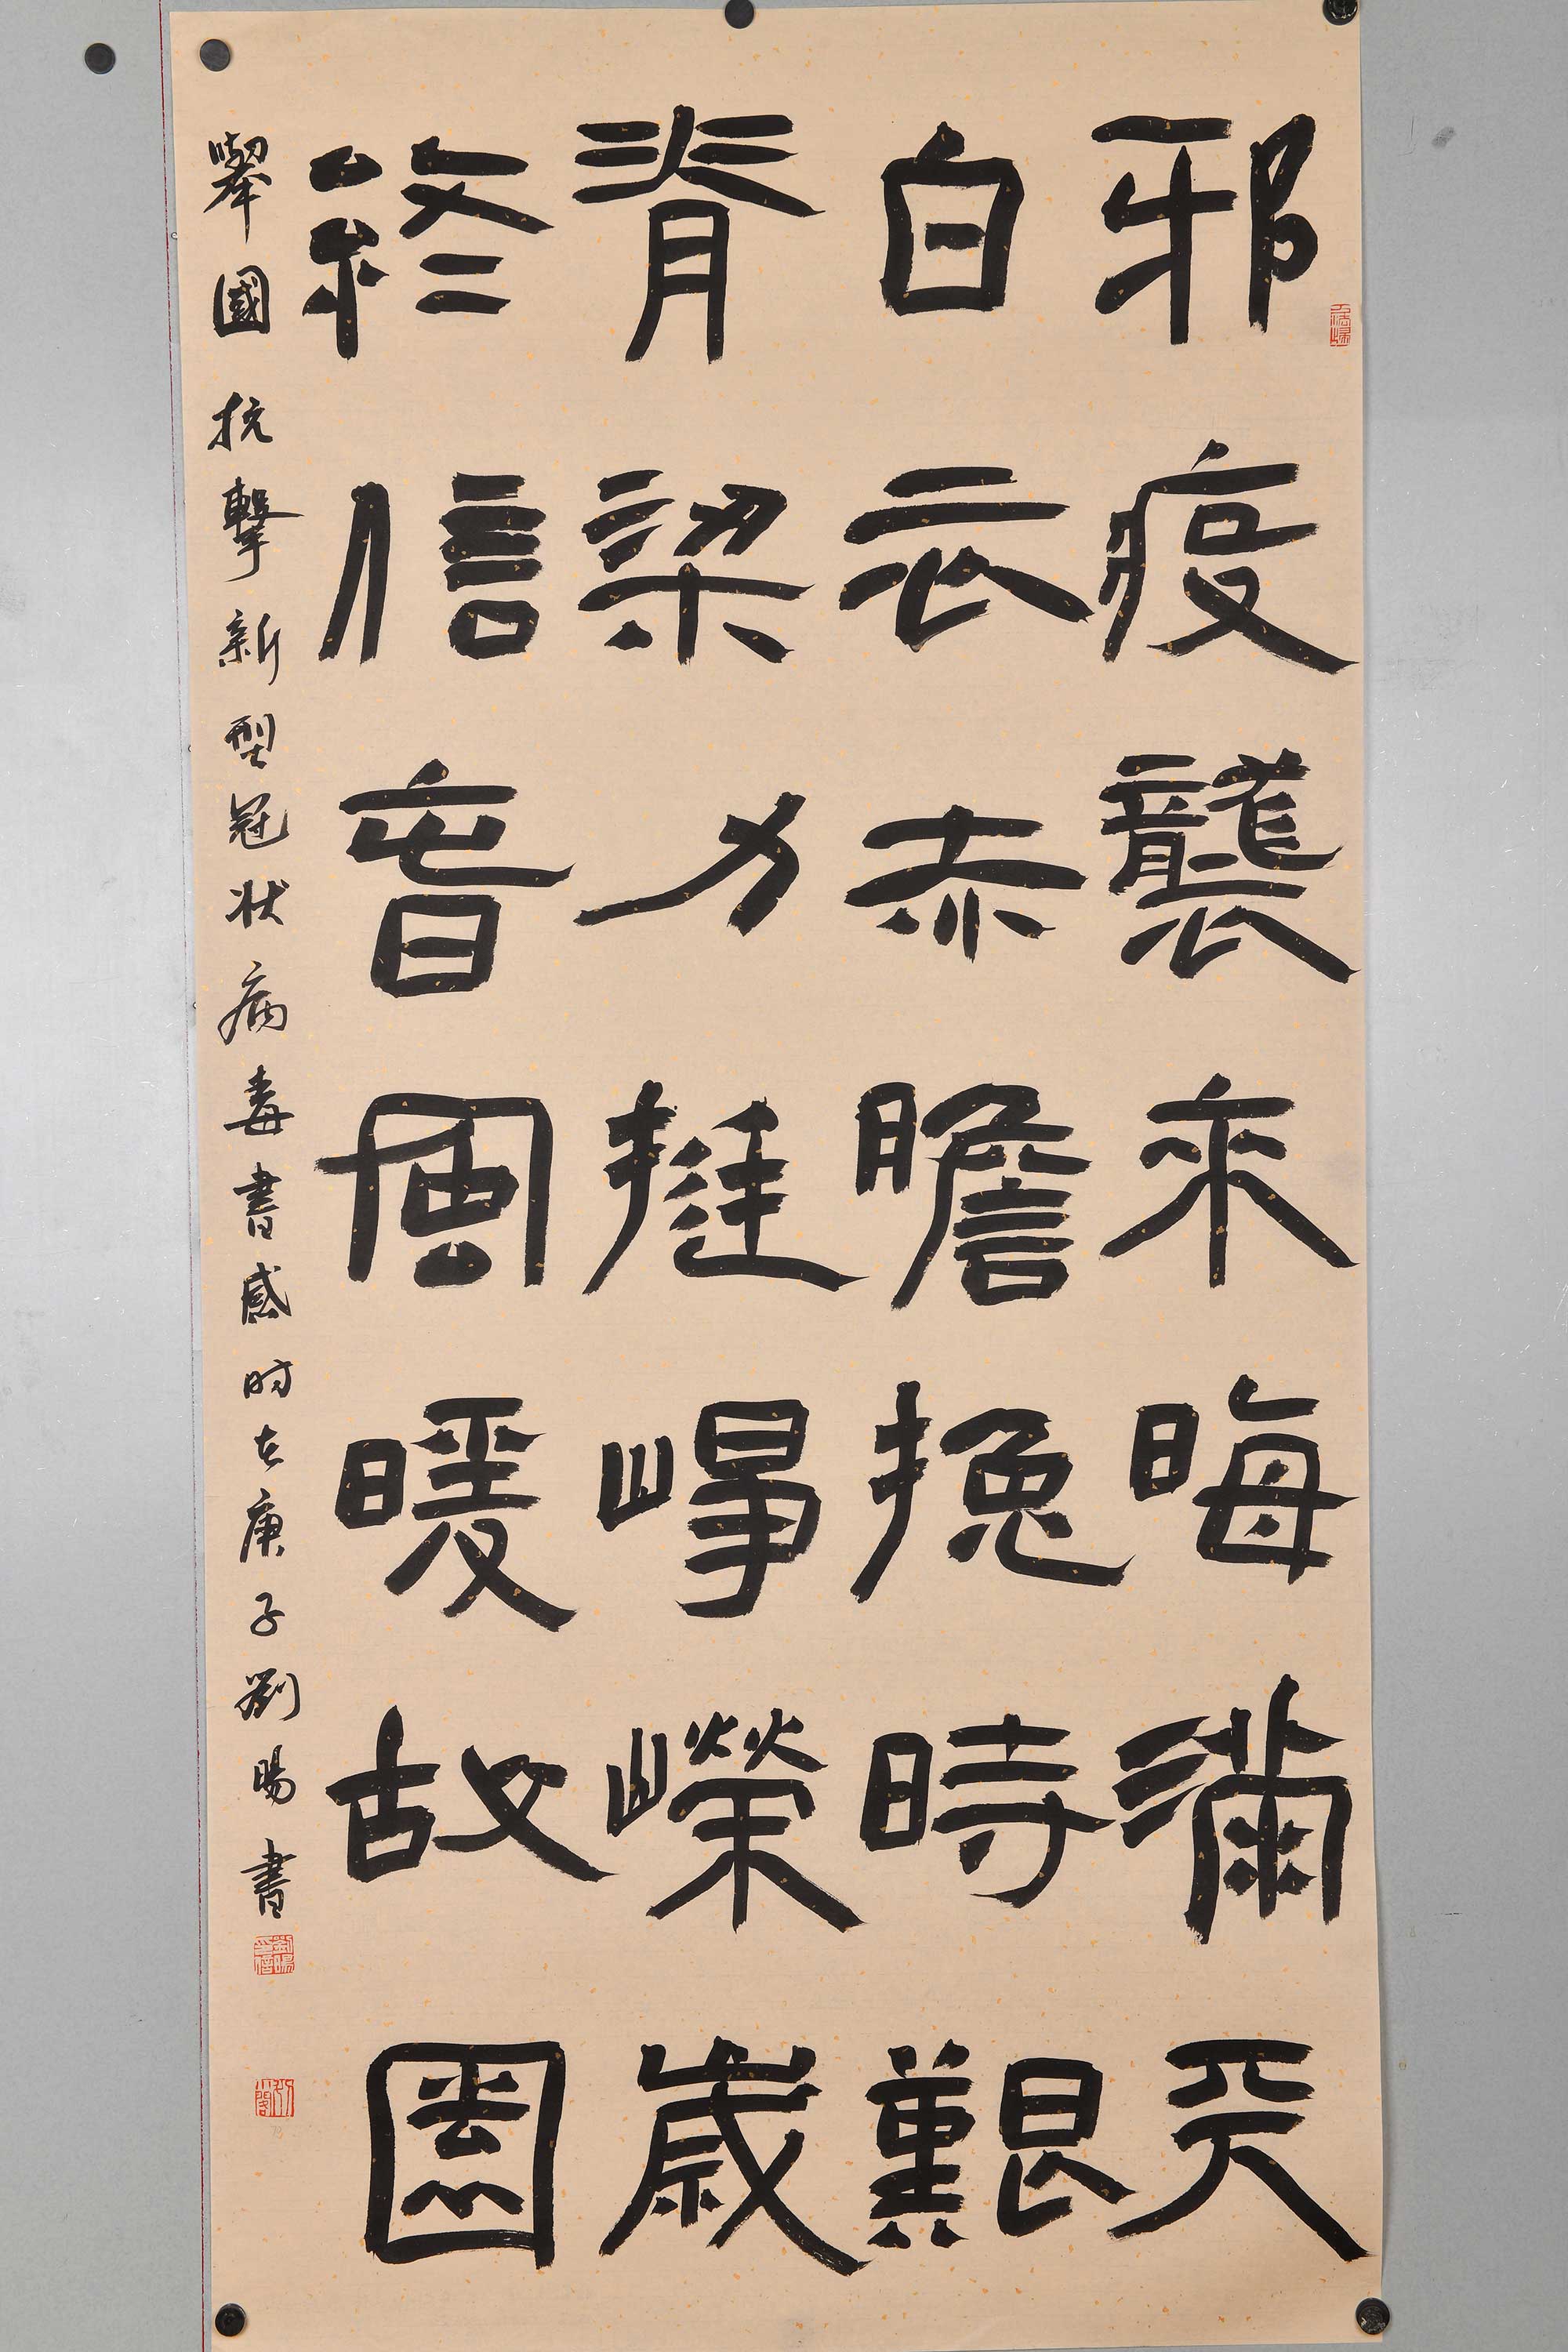 邪疫襲來晦滿天
白衣赤膽挽時艱
脊梁力挺崢嶸歲
終信春風暖故園
舉國抗擊新型冠狀病毒書感時在庚子劉暘書